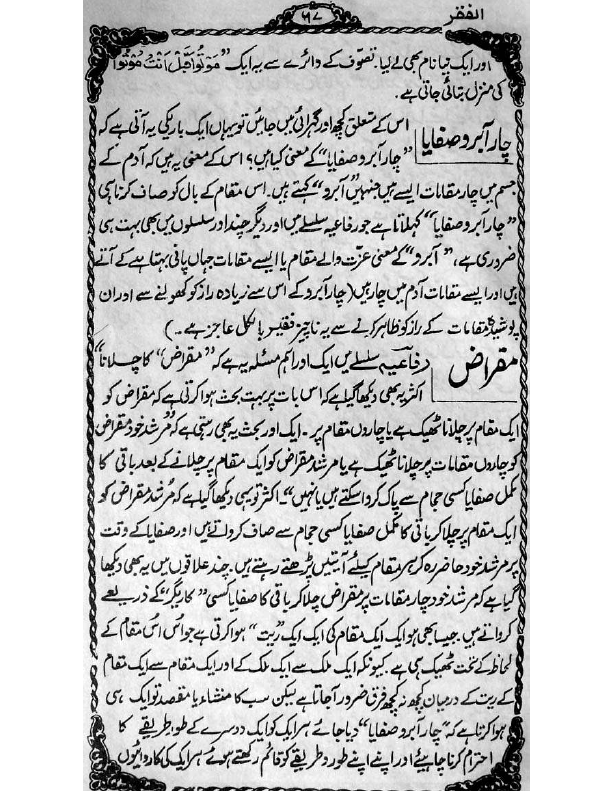 الفقر
٥٦٧
اور ایک نیا نام بھی لے لیا۔ تصوّف کے دائرے سے یہ ایک "مُوْتُوْا قَبْلَ اَنْتَ مُوْتُوْا"
کی منزل بتائی جاتی ہے۔
چار آبرو صفایا
اس کے متعلق کچھ اور گہرائی میں جائیں تو یہاں ایک باریکی یہ آتی ہے کہ
"چار آبرو صفایا" کے معنی کیا ہیں؟ اس کے معنی یہ ہیں کہ آدم کے
جسم میں چار مقامات ایسے ہیں جنہیں "آبرو" کہتے ہیں۔ اس مقام کے بال کو صاف کرنا ہی
"چار آبرو صفایا" کہلاتا ہے جو رفاعیہ سلسلے میں اور دیگر چند اور سلسلوں میں بھی بہت ہی
ضروری ہے، "آبرو" کے معنی عزّت والے مقام یا ایسے مقامات جہاں پانی بہتا ہے کے آتے
ہیں اور ایسے مقامات آدم میں چار ہیں (چار آبرو کے اس سے زیادہ راز کو کھولنے سے اور ان
پوشیدہ مقامات کے راز کو ظاہر کرنے سے یہ ناچیز فقیر بالکل عاجز ہے۔)
مقراض
رفاعیہ سلسلے میں ایک اور اہم مسئلہ یہ ہے کہ "مقراض" کا چلانا"
اکثر یہ بھی دیکھا گیا ہے کہ اس بات پر بہت بحث ہوا کرتی ہے کہ مقراض کو
ایک مقام پر چلانا ٹھیک ہے یا چاروں مقام پر۔ ایک اور بحث یہ بھی رہتی ہے کہ "مُرشد خود مقراض
کو چاروں مقامات پر چلانا ٹھیک ہے یا مرشد مقراض کو ایک مقام پر چلانے کے بعد باقی کا
مکمل صفایا کسی حجام سے پاک کروا سکتے ہیں یا نہیں"۔ اکثر تو یہی دیکھا گیا ہے کہ مُرشد مقراض کو
ایک مقام پر چلا کر باقی کا مکمل صفایا کسی حجام سے صاف کرواتے ہیں اور صفایا کے وقت
پر مرشد خود حاضر رہ کر ہر مقام کیلئے آیتیں پڑھتے رہتے ہیں۔ چند علاقوں میں یہ بھی دیکھا
گیا ہے کہ مرشد خود چار مقامات پر مقراض چلا کر باقی کا صفایا کسی "کاریگر" کے ذریعے
کرواتے ہیں۔ جیسا بھی ہو ایک ایک مقام کی ایک ایک "ریت" ہوا کرتی ہے جو اُس اُس مقام کے
لحاظ کے تحت ٹھیک ہی ہے۔ کیونکہ ایک ملک سے ایک ملک کے اور ایک مقام سے ایک مقام
کے ریت کے درمیان کچھ نہ کچھ فرق ضرور آجاتا ہے لیکن سب کا منشاء یا مقصد تو ایک ہی
ہوا کرتا ہے کہ "چار آبرو صفایا" دیا جائے ہر ایک کو ایک دوسرے کے طور طریقے کا
احترام کرنا چاہیئے اور اپنے اپنے طور و طریقے کو قائم رکھتے ہوئے ہر ایک کی کارروائیوں